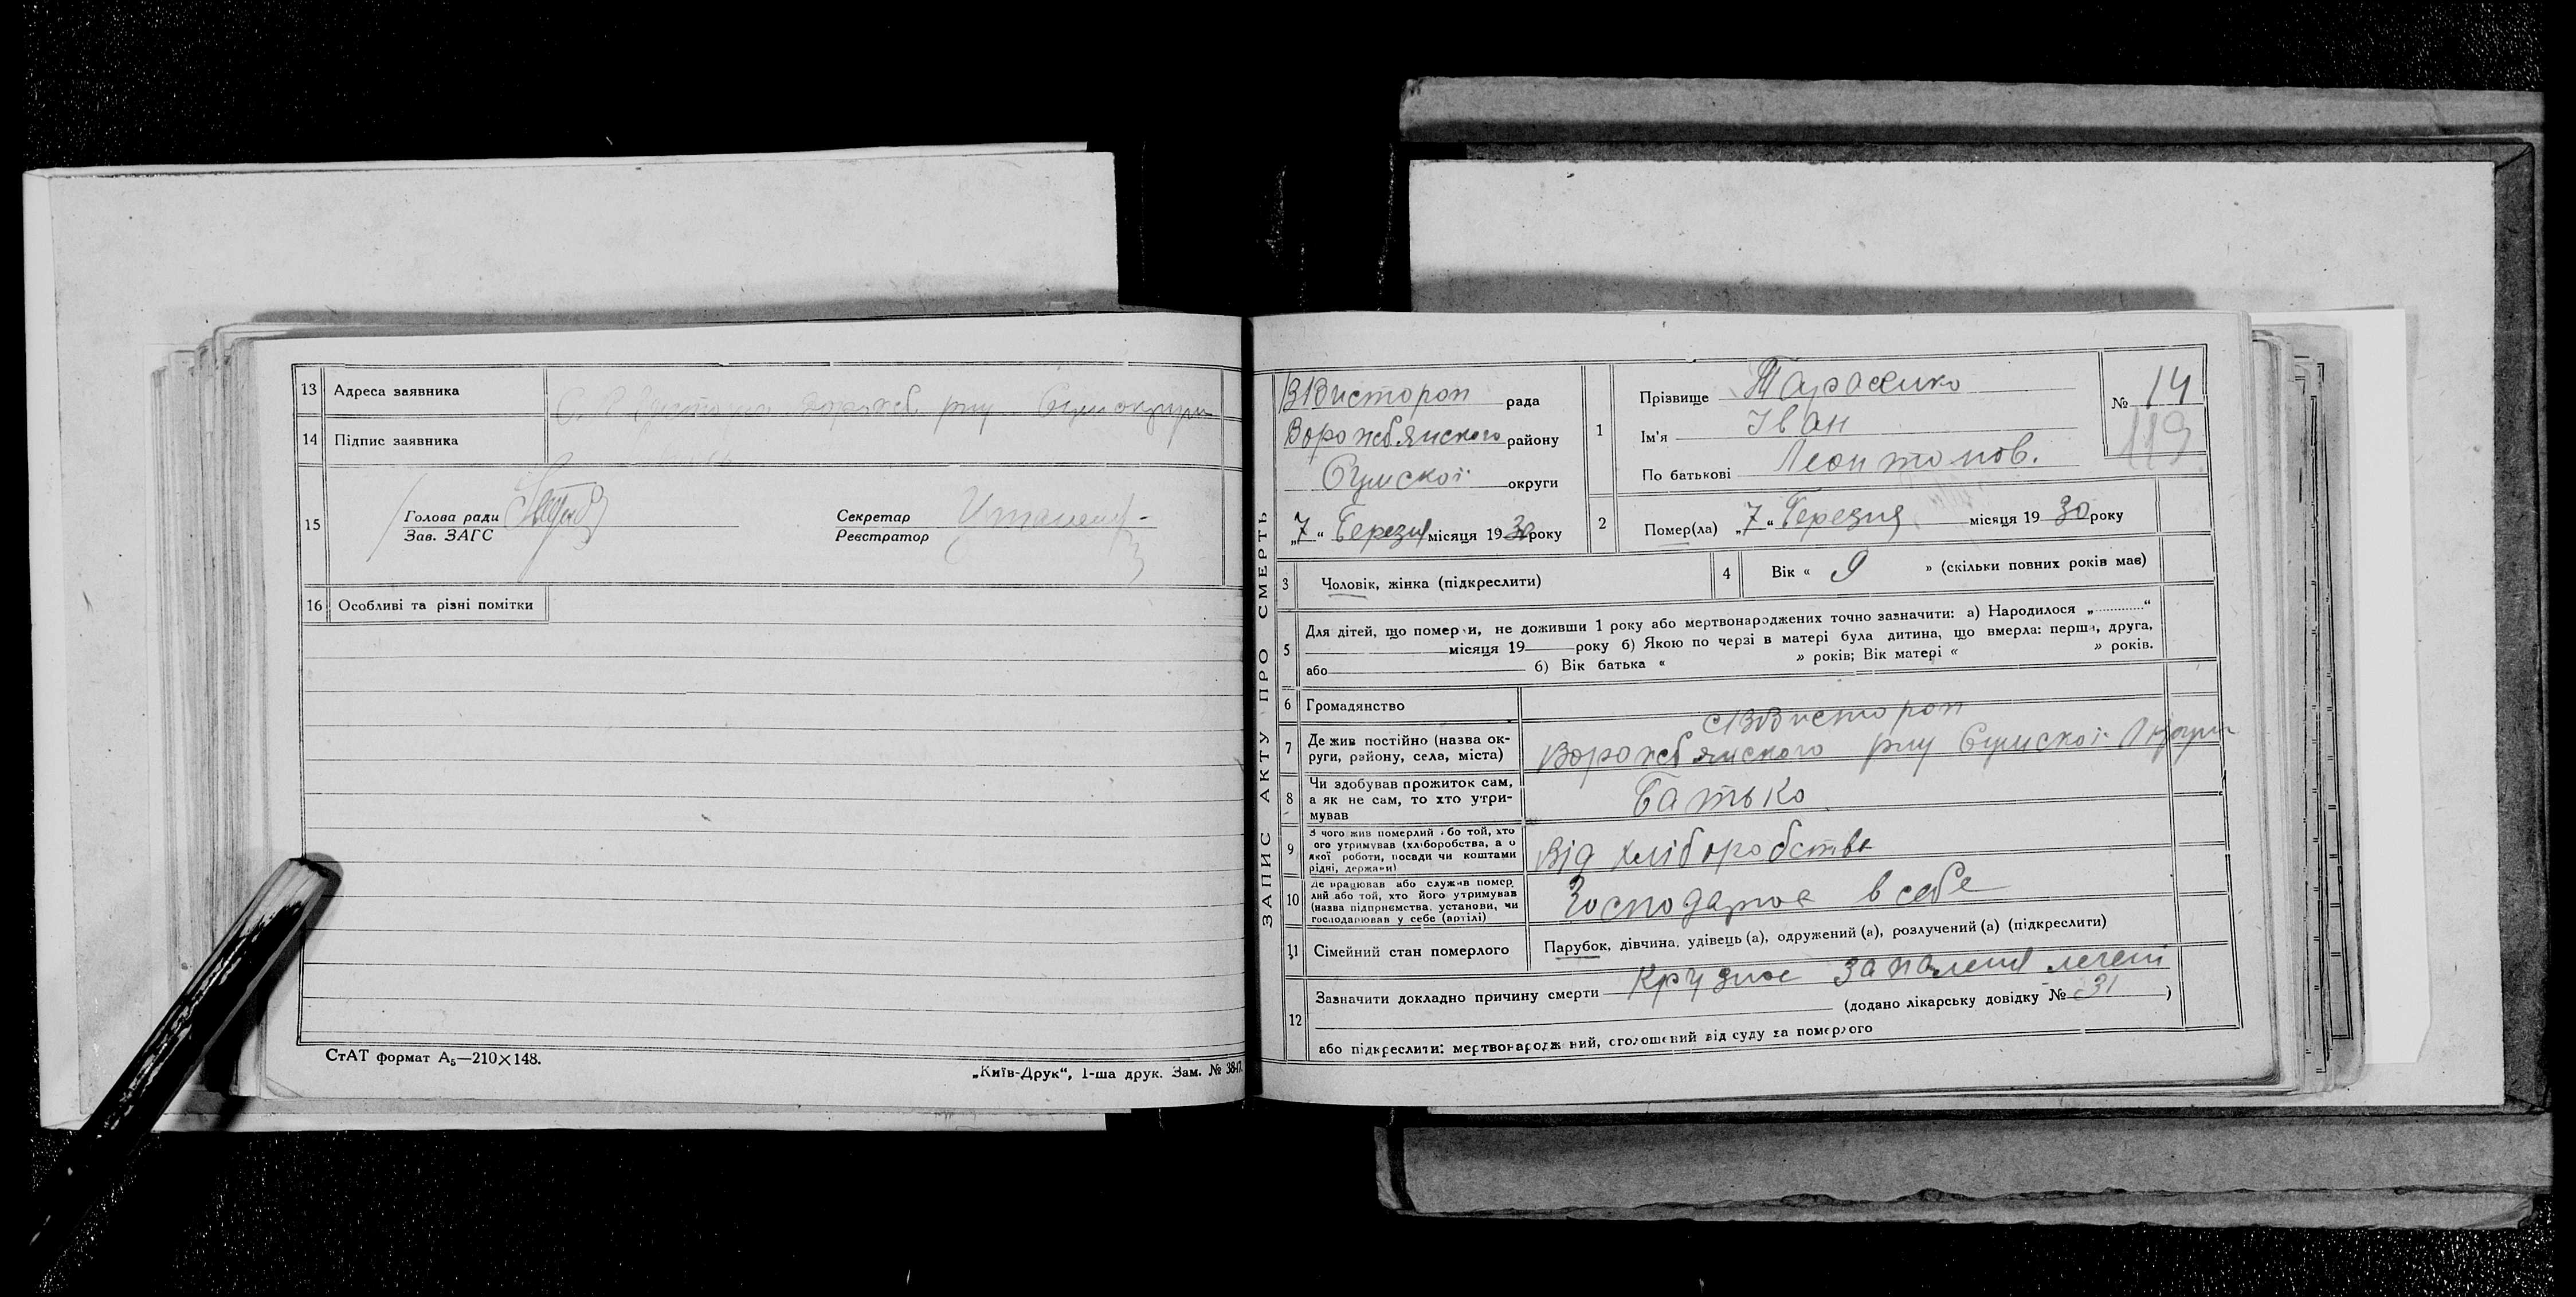 13 Адреса заявника
14 Підпис заявника
15 Голова ради Секретар
Зав. ЗАГС Реєстратор
16 Особливі та різні помітки
СтАТ формат А₅—210×148.
„Київ-Друк“, 1-ша друк. Зам. № 3847.
ЗАПИС АКТУ ПРО СМЕРТЬ
В Вистороп рада
Ворожбянського району
Сумської округи
„7“ Березня місяця 1930 року
1 Прізвище Тарасенко
Ім'я Іван
По батькові Леонтонов.
№ 14
119
2 Помер(ла) „7“ Березня місяця 1930 року
3 Чоловік, жінка (підкреслити)
4 Вік « 9 » (скільки повних років має)
5 Для дітей, що померли, не доживши 1 року або мертвонароджених точно зазначити: а) Народилося „ “
місяця 19 року б) Якою по черзі в матері була дитина, що вмерла: перша, друга,
або б) Вік батька « » років; Вік матері « » років.
6 Громадянство
7 Де жив постійно (назва ок-
руги, району, села, міста)
с В Вистороп
Ворожбянського р-ну Сумської Округи
8 Чи здобував прожиток сам,
а як не сам, то хто утри-
мував
Батько
9 З чого жив померлий або той, хто
його утримував (хліборобства, а о
якої роботи, посади чи коштами
рідні, держави)
Від хліборобства
10 Де працював або служив помер
лий або той, хто його утримував
(назва підприємства, установи, чи
господарював у себе (артілі)
Господарює в себе
11 Сімейний стан померлого
Парубок, дівчина, удівець (а), одружений (а), розлучений (а) (підкреслити)
12 Зазначити докладно причину смерти Крузное запаленя легені
(додано лікарську довідку № 31 )
або підкреслити: мертвонароджений, оголошений від суду за померлого